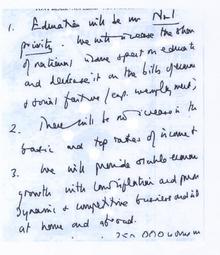 1. Education will be our No 1
priority. We will increase the share
of national income spent on education
and decrease it on the bills of economic
& social failure
2. There will be no increase in the
basic and top rates of income
3. We will provide stable economic
growth with low inflation and
dynamic & competitive business and
at home and abroad.
250,000